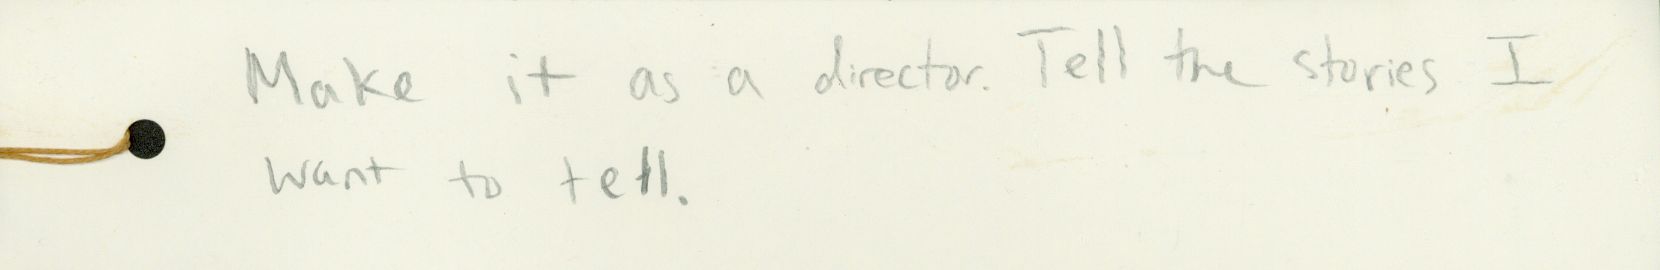 Make it as a director. Tell the stories I
want to tell.